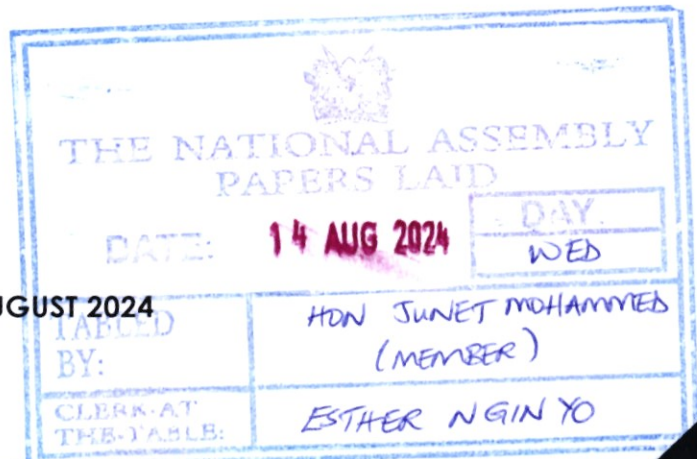 THE NATIONAL ASSEMBLY
PAPERS LAID
DATE: 14 AUG 2024
DAY.
WED
UGUST 2024
TABLED
BY:
HON JUNET MOHAMMED
(MEMBER)
CLERK-AT
THE-TABLE:
ESTHER NGINYO